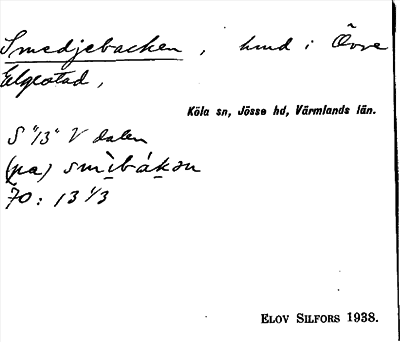 Smedjebacken, hmd i Övre
Elgestad,
Köla sn, Jösse hd, Värmlands län.
S "13" V dalen
(pa) smìbákən
70: 13 1/3
ELOV SILFORS 1938.